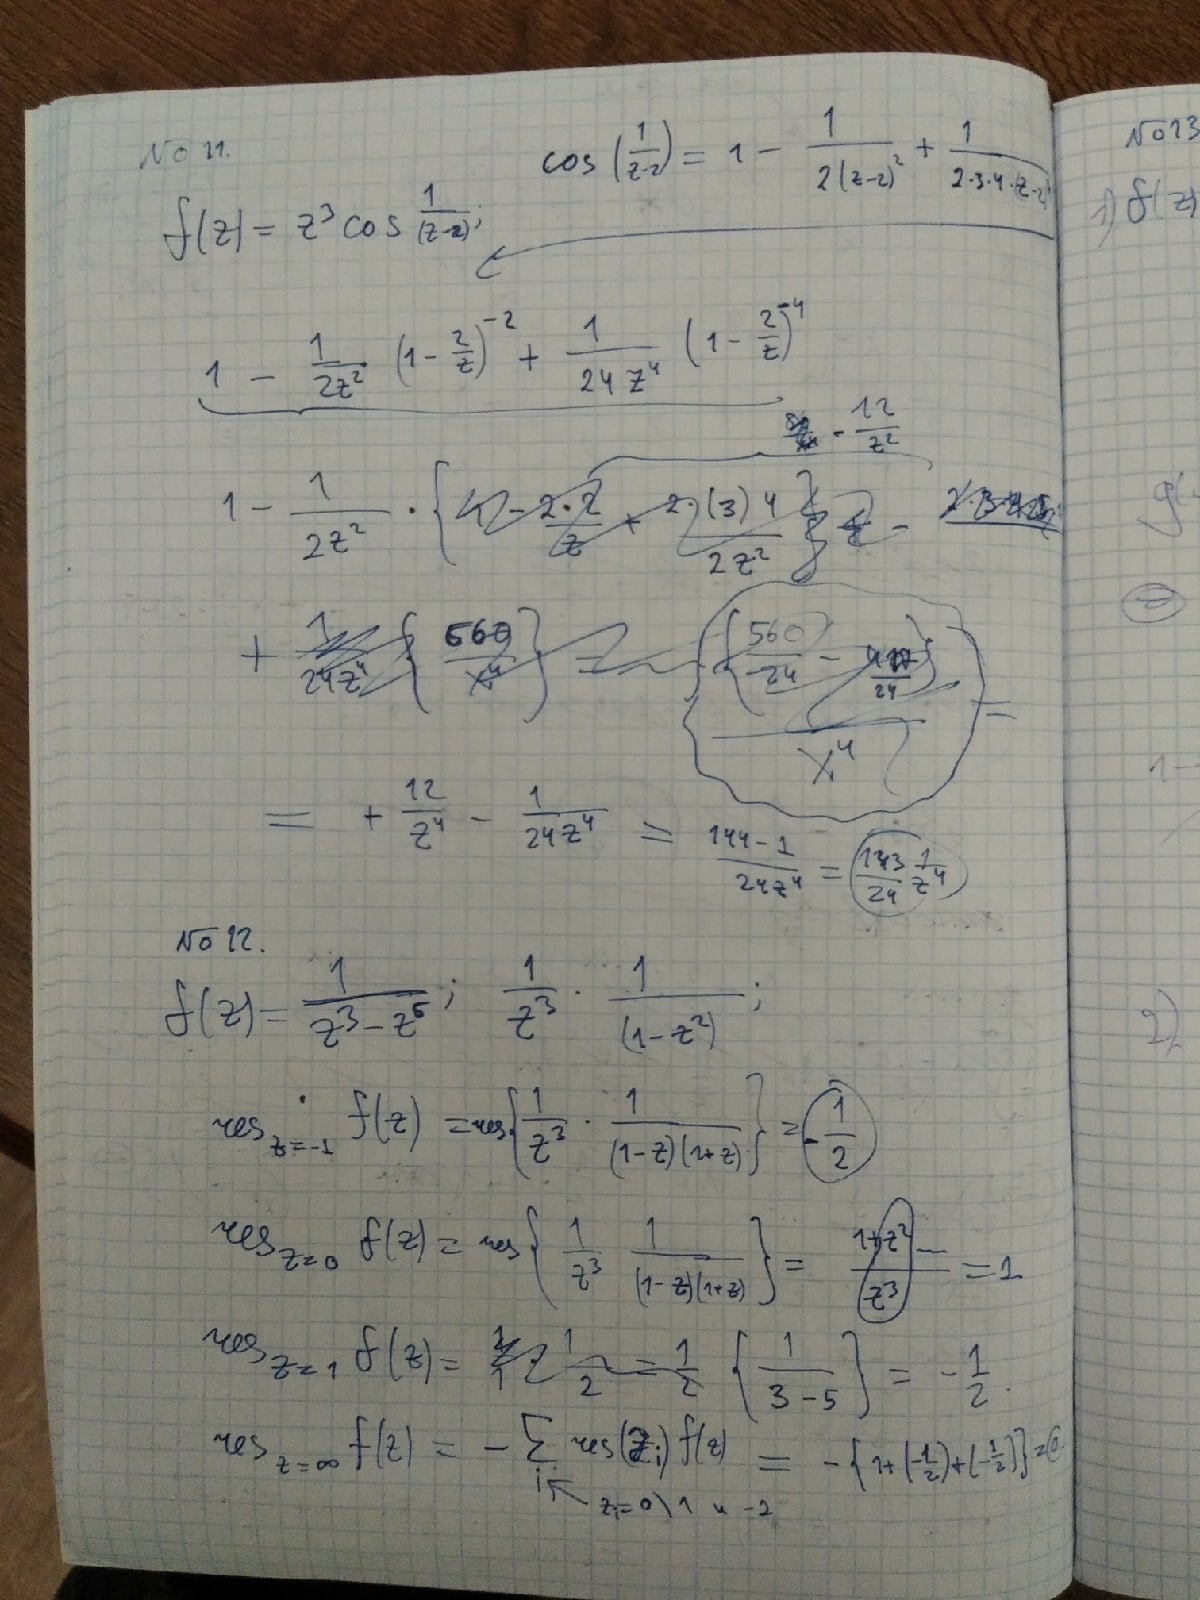 No 11.
cos (1/(z-2)) = 1 - 1/(2(z-2)²) + 1/(2·3·4·(z-2)
f(z) = z³ cos 1/(z-2);
1 - 1/(2z²) (1 - 2/z)⁻² + 1/(24 z⁴) (1 - 2/z)⁻⁴
- 12/z²
1 - 1/(2z²) · { - 2·2/z + 2·(3)4/(2z²) }
+ 1/(24z⁴) { 560/x⁴ } = { 560/24 - /24 } / x⁴ =
= + 12/z⁴ - 1/(24z⁴) = (144-1)/(24z⁴) = 143/24 1/z⁴
No 12.
f(z) = 1/(z³-z⁵); 1/z³ · 1/(1-z²);
res z=-1 f(z) = res{ 1/z³ · 1/((1-z)(1+z)) } = -1/2
res z=0 f(z) = res{ 1/z³ 1/((1-z)(1+z)) } = (1+z²)/z³ = 1
res z=1 f(z) = 1/2 = 1/2 { 1/(3-5) } = -1/2.
res z=∞ f(z) = - Σ i res(zi) f(z) = -{1+(-1/2)+(-1/2)}=0
zi=0\1 и -2
No 13
1) f(z)
g(
1-
2)